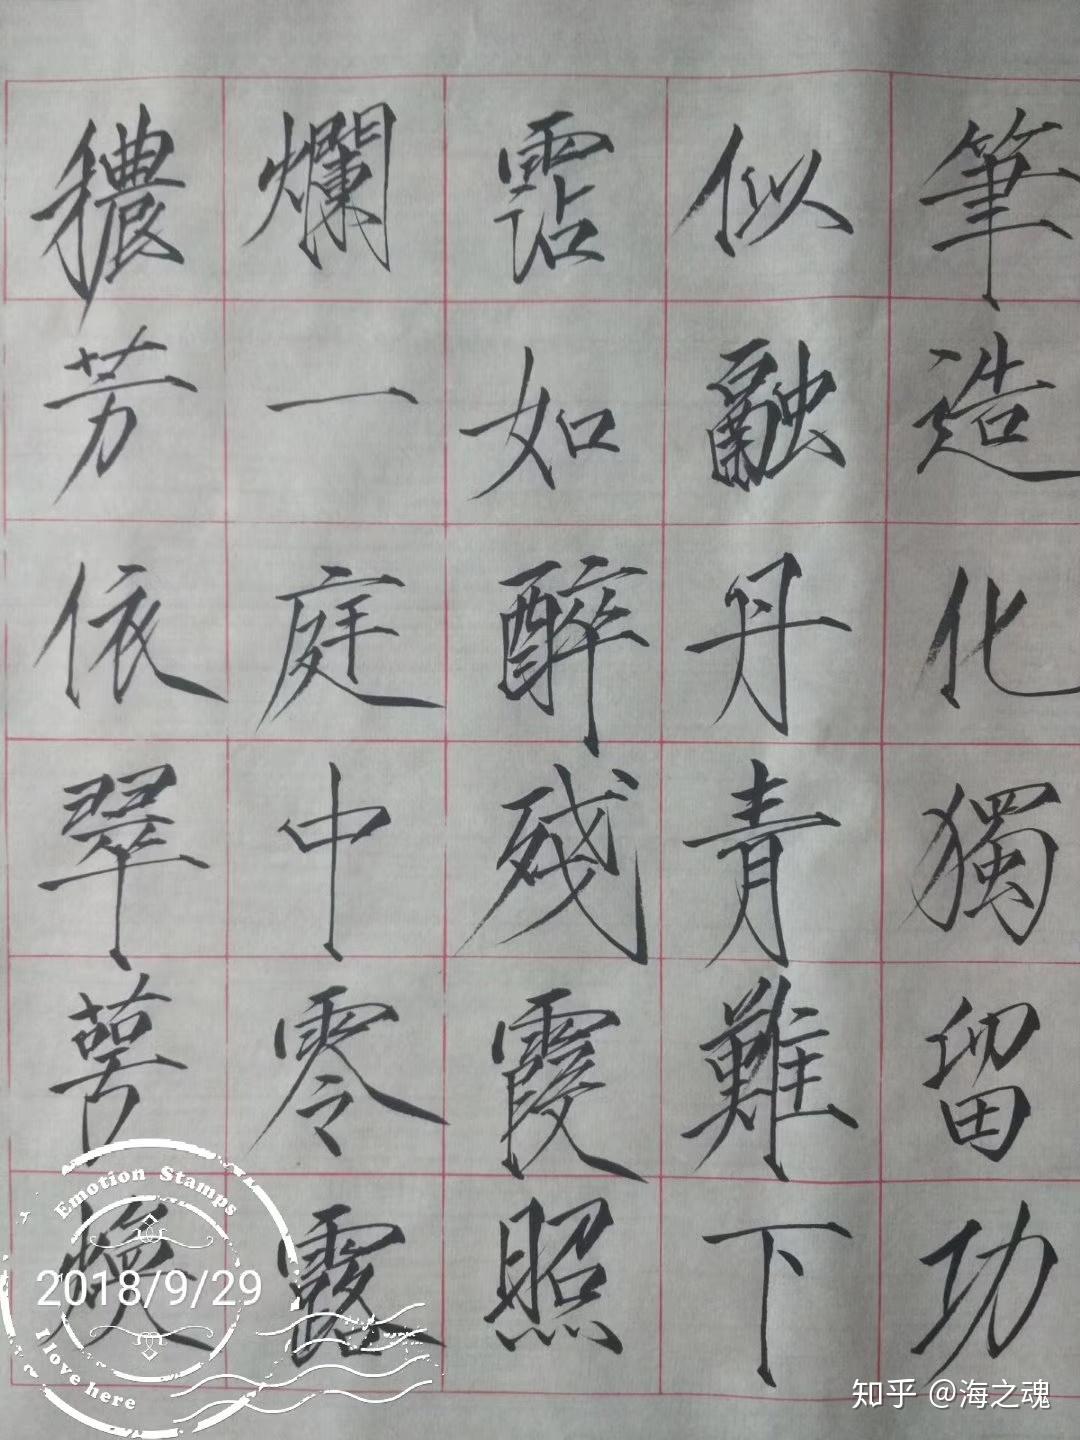 穠芳依翠萼煥
爛一庭中零露
霑如醉殘霞照
似融丹青難下
筆造化獨留功
Emotion Stamps
2018/9/29
I love here
知乎 @海之魂